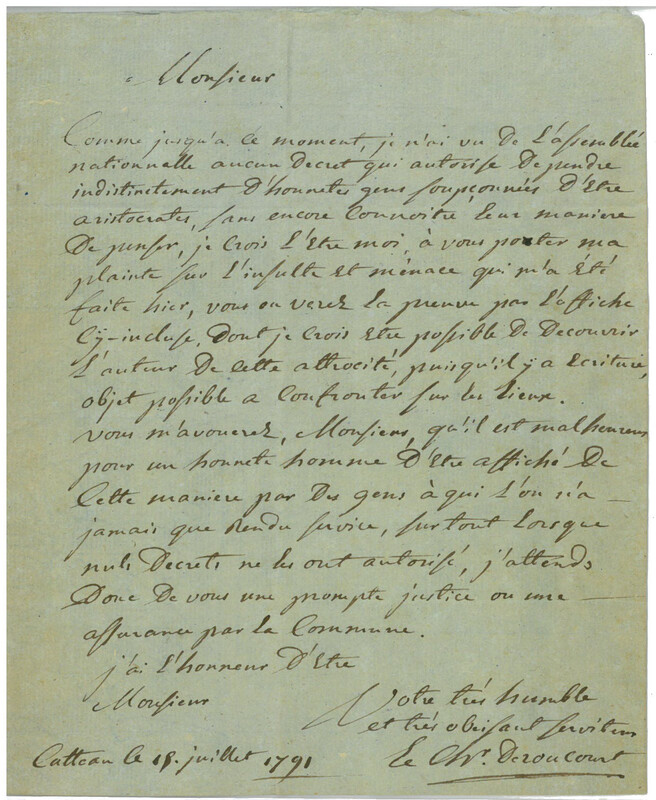 Monsieur
Comme jusqu'a ce moment, je n'ai vu De L'assemblée
nationnelle aucun Decret qui autorise De pendre
indistinctement D'honnetes gens soupçonnées D'Etre
aristocrates, sans encore Connoitre Leur maniere
De penser, je Crois L'Etre moi, à vous porter ma
plainte sur L'insulte et ménace qui m'a été
faite hier, vous en verez La preuve par L'affiche
Cy-incluse, Dont je Crois Etre possible De Decouvrir
L'auteur De Cette attrocité, puisqu'il y a Ecriture,
objet possible a Confronter sur les Lieux.
vous m'avouerez, Monsieur, qu'il est malheureux
pour un honnete homme D'Etre affiché De
Cette maniere par Des gens à qui L'on n'a
jamais que Rendu service, surtout Lorsque
nuls Decrets ne les ont autorisé, j'attends
Donc De vous une prompte justice ou une
assurance par La Commune.
j'ai L'honneur D'Etre
Monsieur
Votre trés humble
et trés obeisant serviteur
Catteau le 18. juillet 1791
Le Chr. Deroucourt